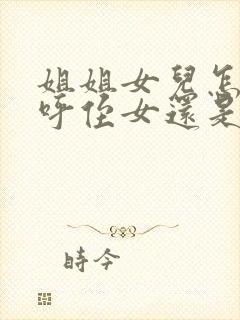 姐姐女兒怎
呼侄女還是
時今